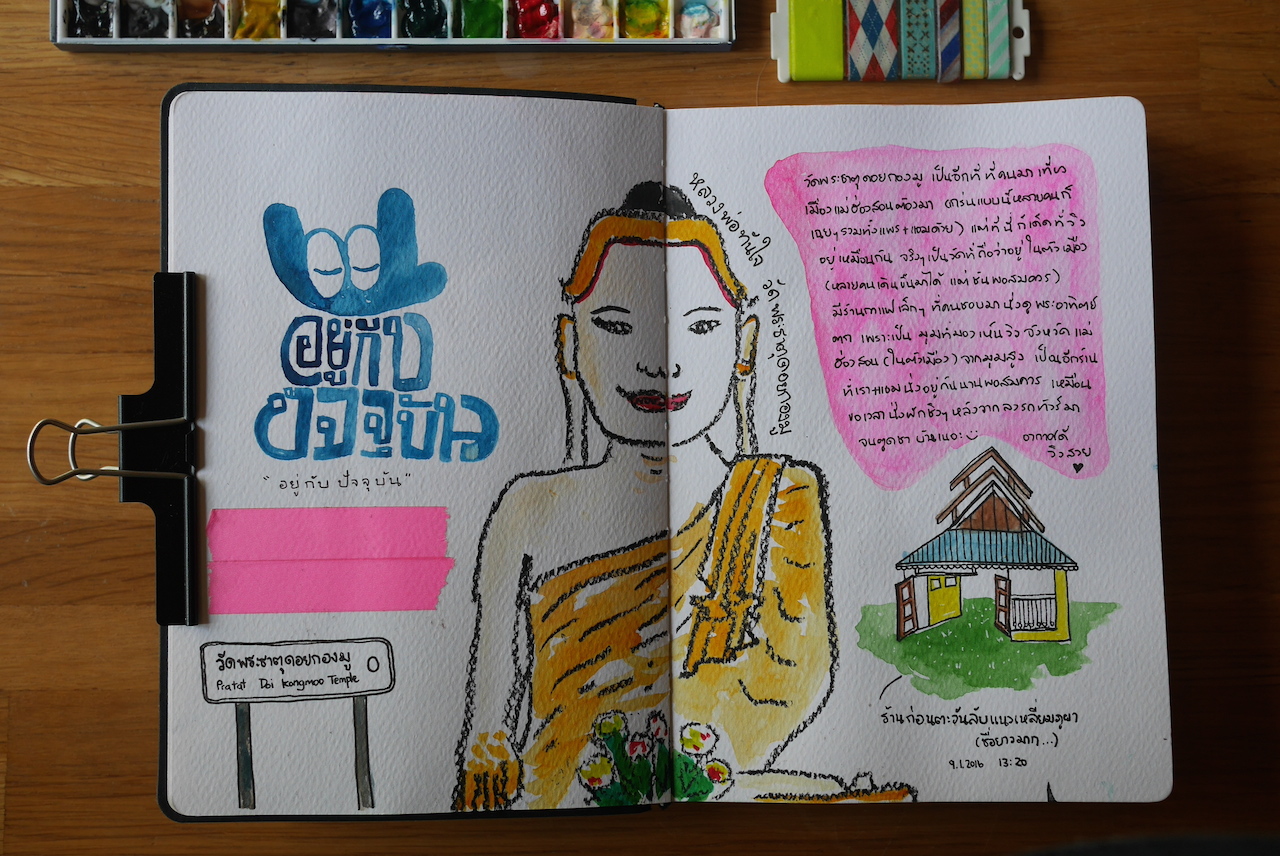 อยู่กับ
ปัจจุบัน
"อยู่กับ ปัจจุบัน"
วัดพระธาตุดอยกองมู
Pratat Doi Kongmoo Temple
หลวงพ่อทันใจ วัดพระธาตุดอยกองมู
วัดพระธาตุดอยกองมู เป็นอีกที่ ที่คนมาเที่ยว
เมืองแม่ฮ่องสอนต้องมา (กร่นแบบนี้หลายคนก็
เฉยๆ รวมทั้งแพร + แอมด้วย) แต่ที่นี่ก็เด็ดที่วิว
อยู่เหมือนกัน จริงๆ เป็นวัดที่ถือว่าอยู่ในตัวเมือง
(หลายคนเดินขึ้นมาได้ แต่ชันพอสมควร)
มีร้านกาแฟเล็กๆ ที่คนชอบมานั่งดูพระอาทิตย์
ตก เพราะเป็นมุมที่มองเห็นวิวจังหวัดแม่
ฮ่องสอน (ในตัวเมือง) จากมุมสูง เป็นอีกร้าน
ที่เรา+แอม นั่งอยู่กันนานพอสมควร เหมือน
ขอเวลานั่งพักชิวๆ หลังจากลงรถทัวร์มา
จนตูดชา บ้านเนอะ อากาศดี
วิวสวย
ร้านก่อนตะวันลับแนวเหลี่ยมภูผา
(ชื่อยาวมาก...)
9.1.2016 13:20